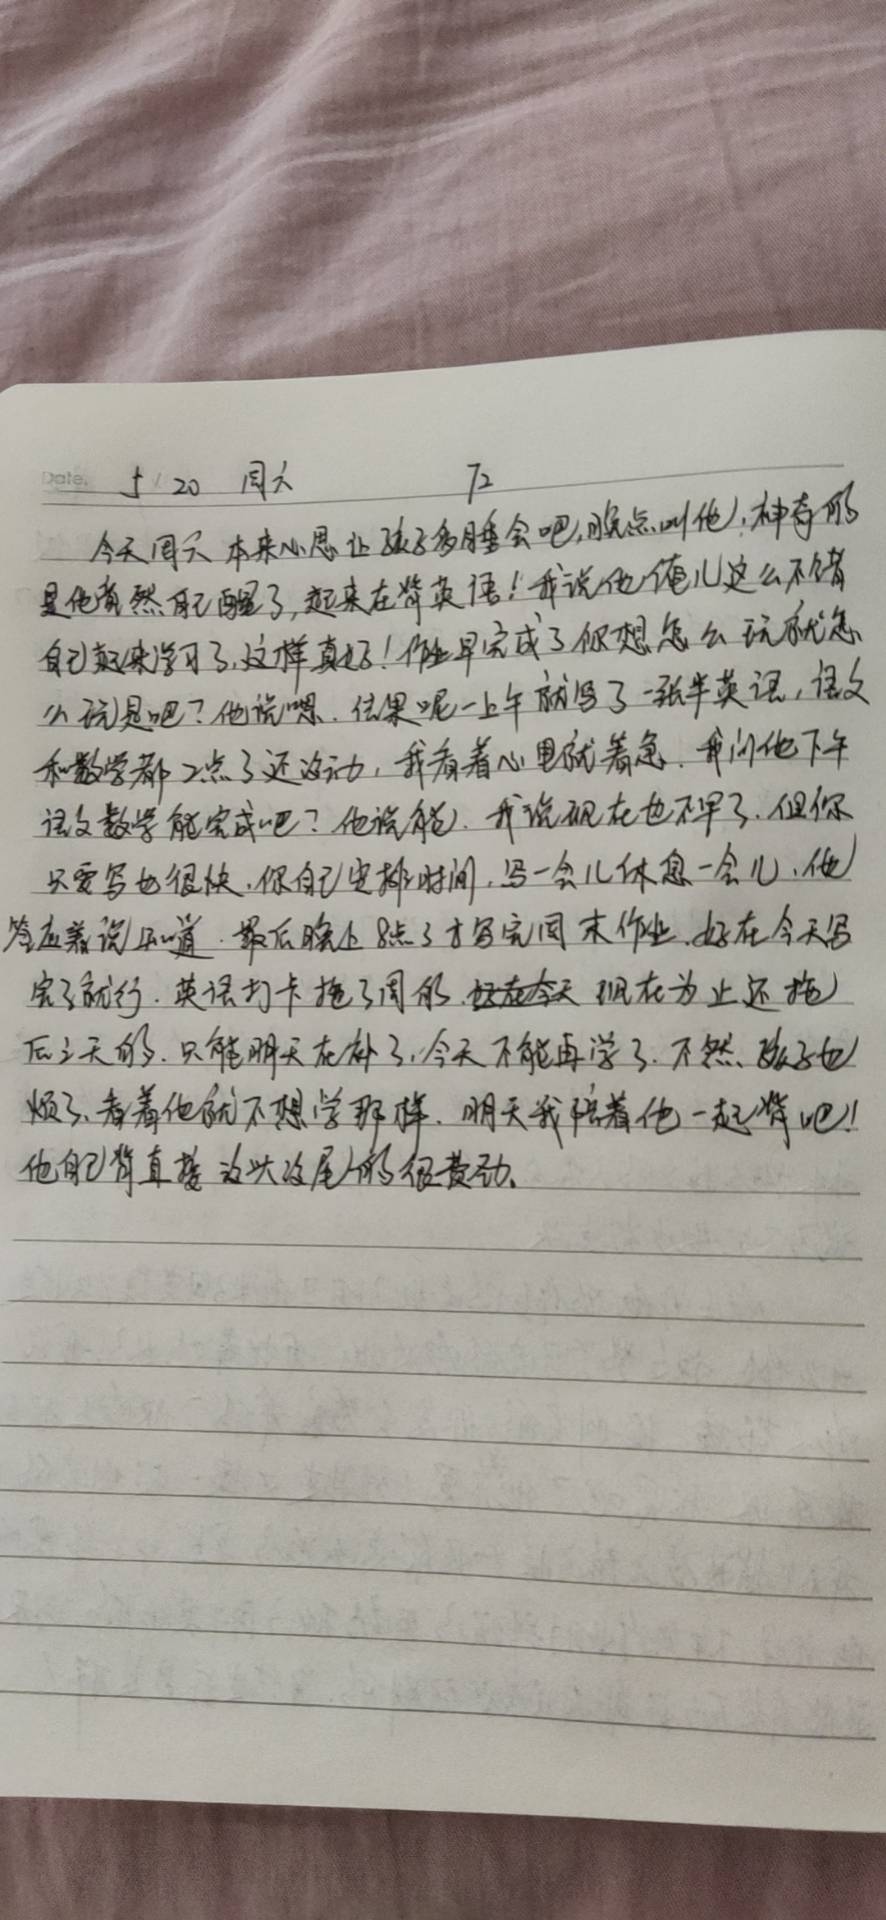 Date. 5/20 周六 72
今天周六本来心思让孩子多睡会吧,晚点叫他,神奇的
是他竟然自己醒了,起来在背英语!我说他俺儿这么不错
自己起来学习了,这样真好!作业早完成了你想怎么玩就怎
么玩是吧?他说嗯.结果呢一上午就写了一张半英语,语文
和数学都2点了还没动,我看着心里就着急.我问他下午
语文数学能完成吧?他说能.我说现在也不早了.但你
只要写也很快,你自己安排时间,写一会儿休息一会儿,他
答应着说知道.最后晚上8点了才写完周末作业.好在今天写
完了就行.英语打卡拖了周的.现在为止还拖
后三天的.只能明天在补了,今天不能再学了.不然孩子也
烦了,看着他就不想学那样.明天我陪着他一起背吧!
他自己背直接没头没尾的很费劲.